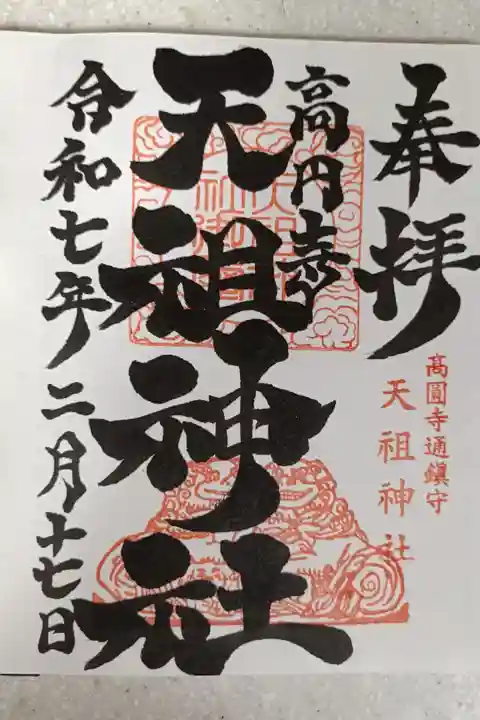 奉拝
髙圓寺通鎮守
天祖神社
高円寺
天祖神社
令和七年二月十七日